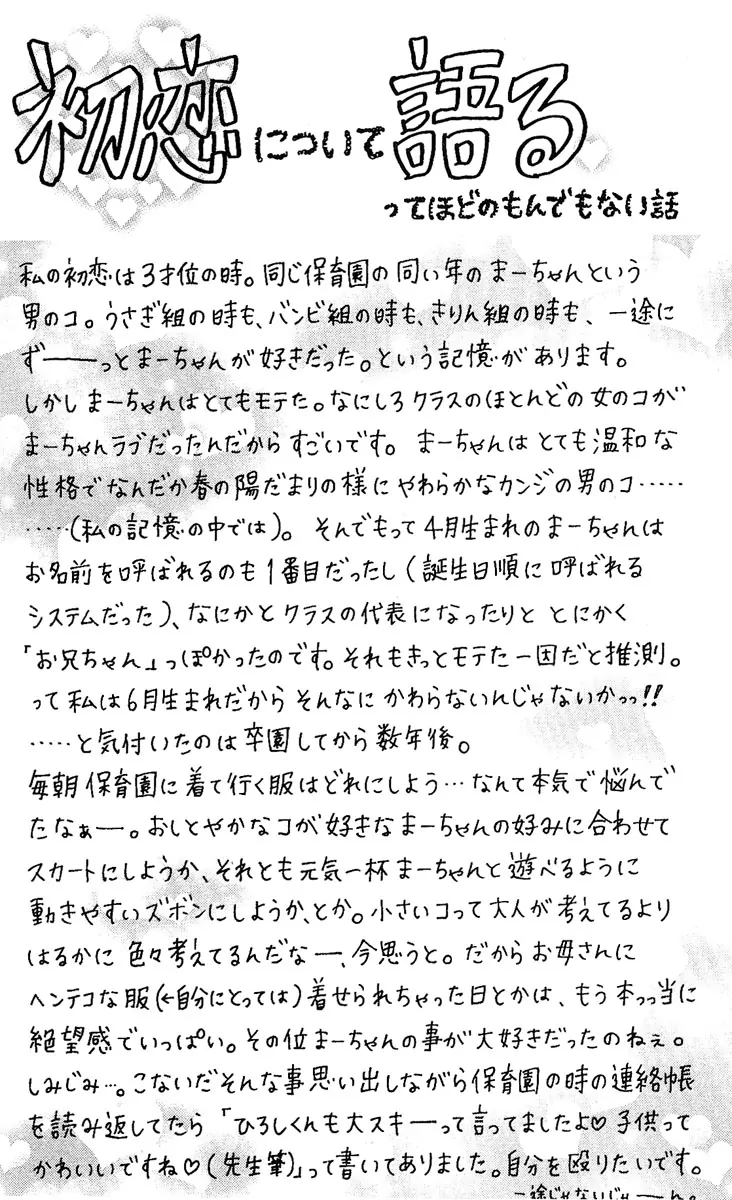 初恋について語る
ってほどのもんでもない話
私の初恋は3才位の時。同じ保育園の同い年のまーちゃんという
男のコ。うさぎ組の時も、バンビ組の時も、きりん組の時も、一途に
ず――っとまーちゃんが好きだった。という記憶があります。
しかしまーちゃんはとてもモテた。なにしろクラスのほとんどの女のコが
まーちゃんラブだったんだからすごいです。まーちゃんはとても温和な
性格でなんだか春の陽だまりの様にやわらかなカンジの男のコ……
……(私の記憶の中では)。そんでもって4月生まれのまーちゃんは
お名前を呼ばれるのも1番目だったし(誕生日順に呼ばれる
システムだった)、なにかとクラスの代表になったりと とにかく
「お兄ちゃん」っぽかったのです。それもきっとモテた一因だと推測。
って私は6月生まれだからそんなにかわらないんじゃないかっっ!!
……と気付いたのは卒園してから数年後。
毎朝保育園に着て行く服はどれにしよう…なんて本気で悩んで
たなぁー。おしとやかなコが好きなまーちゃんの好みに合わせて
スカートにしようか、それとも元気一杯まーちゃんと遊べるように
動きやすいズボンにしようか、とか。小さいコって大人が考えてるより
はるかに色々考えてるんだなー、今思うと。だからお母さんに
ヘンテコな服(←自分にとっては)着せられちゃった日とかは、もう本っっ当に
絶望感でいっぱい。その位まーちゃんの事が大好きだったのねぇ。
しみじみ…。こないだそんな事思い出しながら保育園の時の連絡帳
を読み返してたら「ひろしくんも大スキーって言ってましたよ♡子供って
かわいいですね♡(先生筆)」って書いてありました。自分を殴りたいです。
一途じゃないじゃーーん。